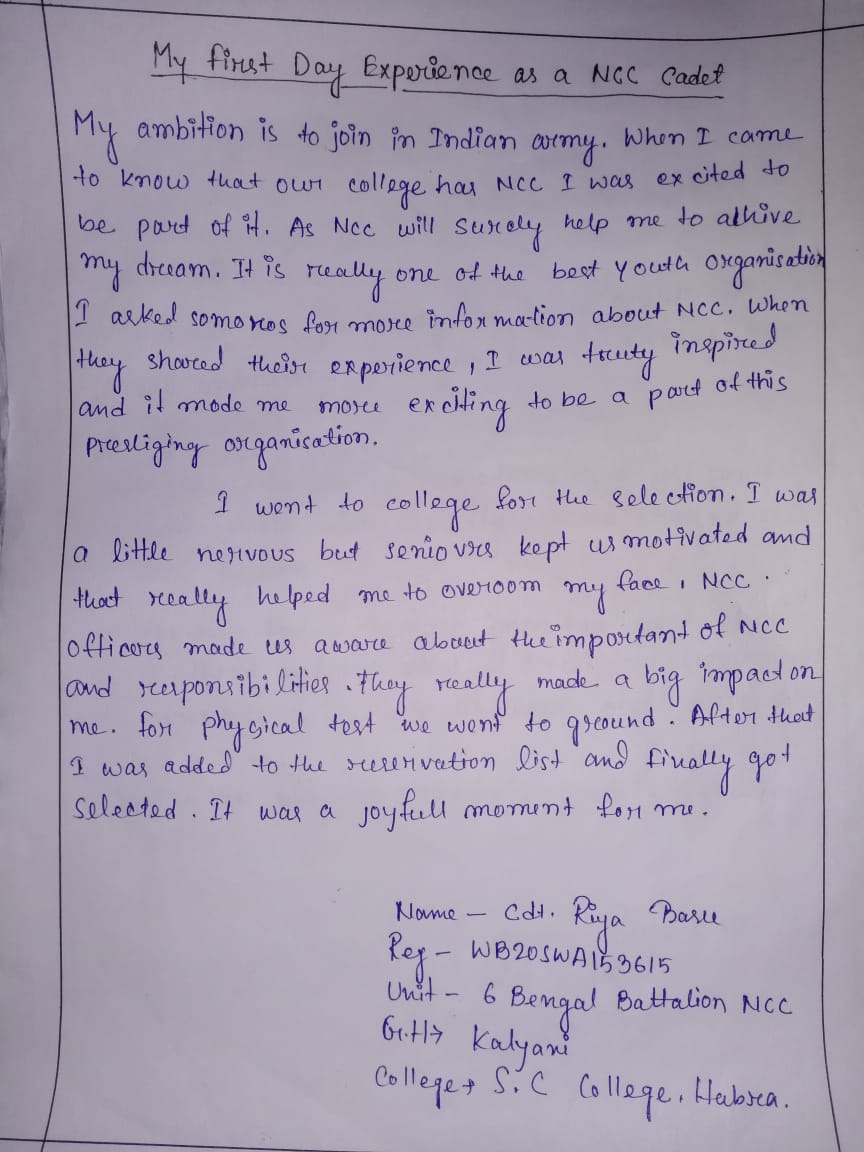 My first Day Experience as a NCC Cadet
My ambition is to join in Indian army. When I came
to know that our college has NCC I was excited to
be part of it. As NCC will surely help me to athive
my dream. It is really one of the best Youth Organisation
I asked somones for more information about NCC. When
they shared their experience, I was truty inspired
and it made me more exciting to be a part of this
presliging organisation.
I went to college for the selection. I was
a little nervous but seniours kept us motivated and
that really helped me to overoom my face, NCC.
officers made us aware about the important of NCC
and responsibilities. They really made a big impact on
me. for phygical test we went to ground. After that
I was added to the reservation list and finally got
selected. It was a joyfull moment for me.
Name - Cdt. Riya Basu
Reg - WB20SWA153615
Unit - 6 Bengal Battalion NCC
Kalyani
College → S.C College, Habra.